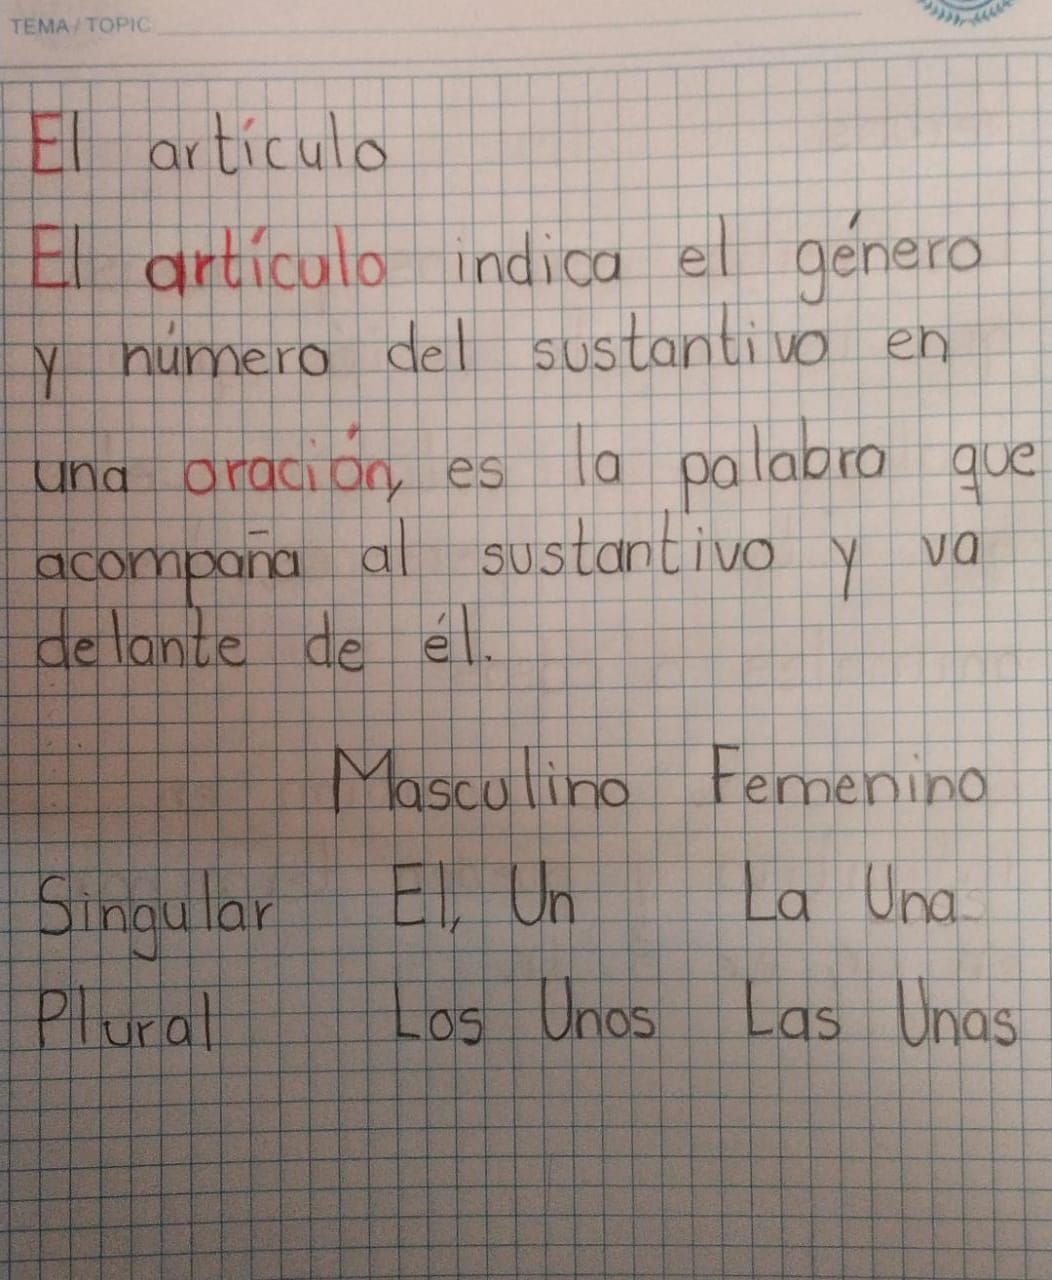 TEMA/TOPIC
El artículo
El artículo indica el género
y número del sustantivo en
una oración, es la palabra que
acompaña al sustantivo y va
delante de él.
Masculino Femenino
Singular El, Un La Una
Plural Los Unos Las Unas